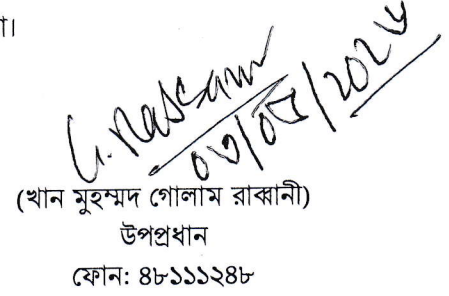 া।
G. Rabbani
০৩/০৫/২০২৬
(খান মুহম্মদ গোলাম রাব্বানী)
উপপ্রধান
ফোন: ৪৮১১১২৪৮